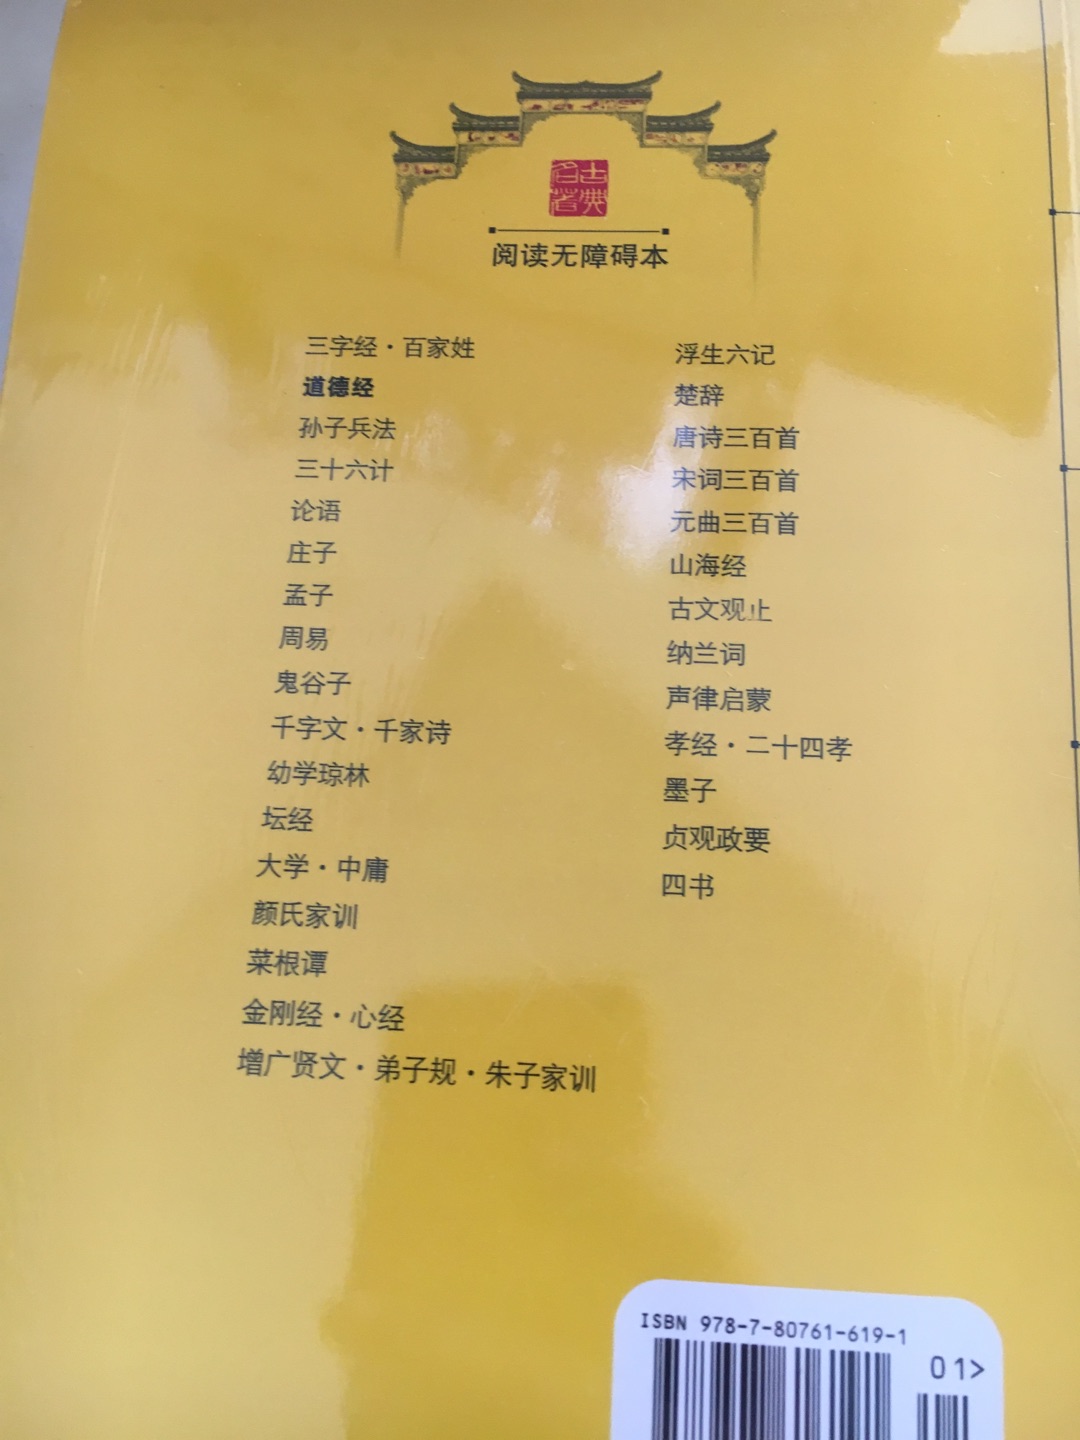 古典
名著
阅读无障碍本
三字经·百家姓
道德经
孙子兵法
三十六计
论语
庄子
孟子
周易
鬼谷子
千字文·千家诗
幼学琼林
坛经
大学·中庸
颜氏家训
菜根谭
金刚经·心经
增广贤文·弟子规·朱子家训
浮生六记
楚辞
唐诗三百首
宋词三百首
元曲三百首
山海经
古文观止
纳兰词
声律启蒙
孝经·二十四孝
墨子
贞观政要
四书
ISBN 978-7-80761-619-1
01>